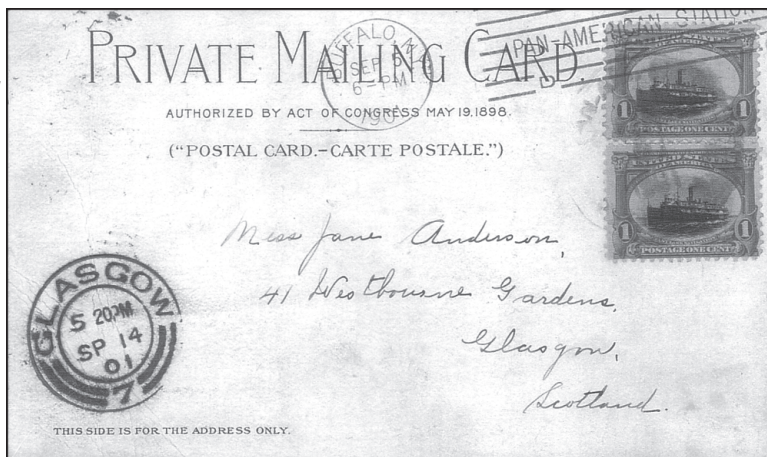 PRIVATE MAILING CARD.
BUFFALO, N.Y.
SEP 5
6-PM
1901
PAN-AMERICAN STATION
D
AUTHORIZED BY ACT OF CONGRESS MAY 19, 1898.
("POSTAL CARD.–CARTE POSTALE.")
1 1
POSTAGE ONE CENT
UNITED STATES
OF AMERICA
1 1
POSTAGE ONE CENT
Miss Jane Anderson,
41 Westbourne Gardens,
Glasgow,
Scotland.
GLASGOW
5 20PM
SP 14
01
7
THIS SIDE IS FOR THE ADDRESS ONLY.